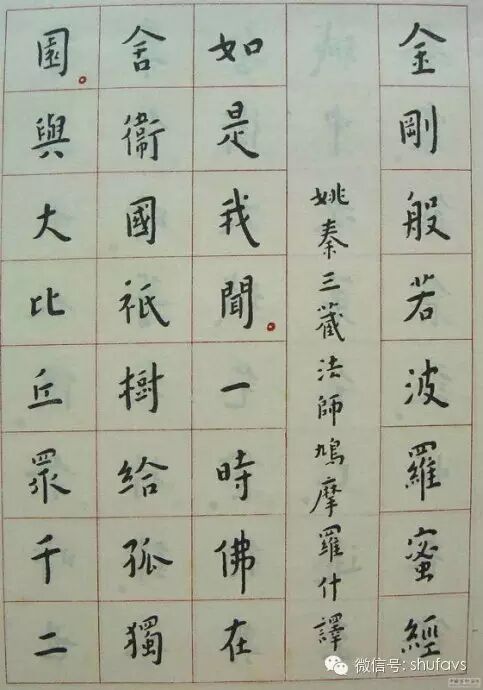 金剛般若波羅蜜經
姚秦三藏法師鳩摩羅什譯
如是我聞。一時佛在
舍衞國祇樹給孤獨
園。與大比丘眾千二
微信号: shufavs